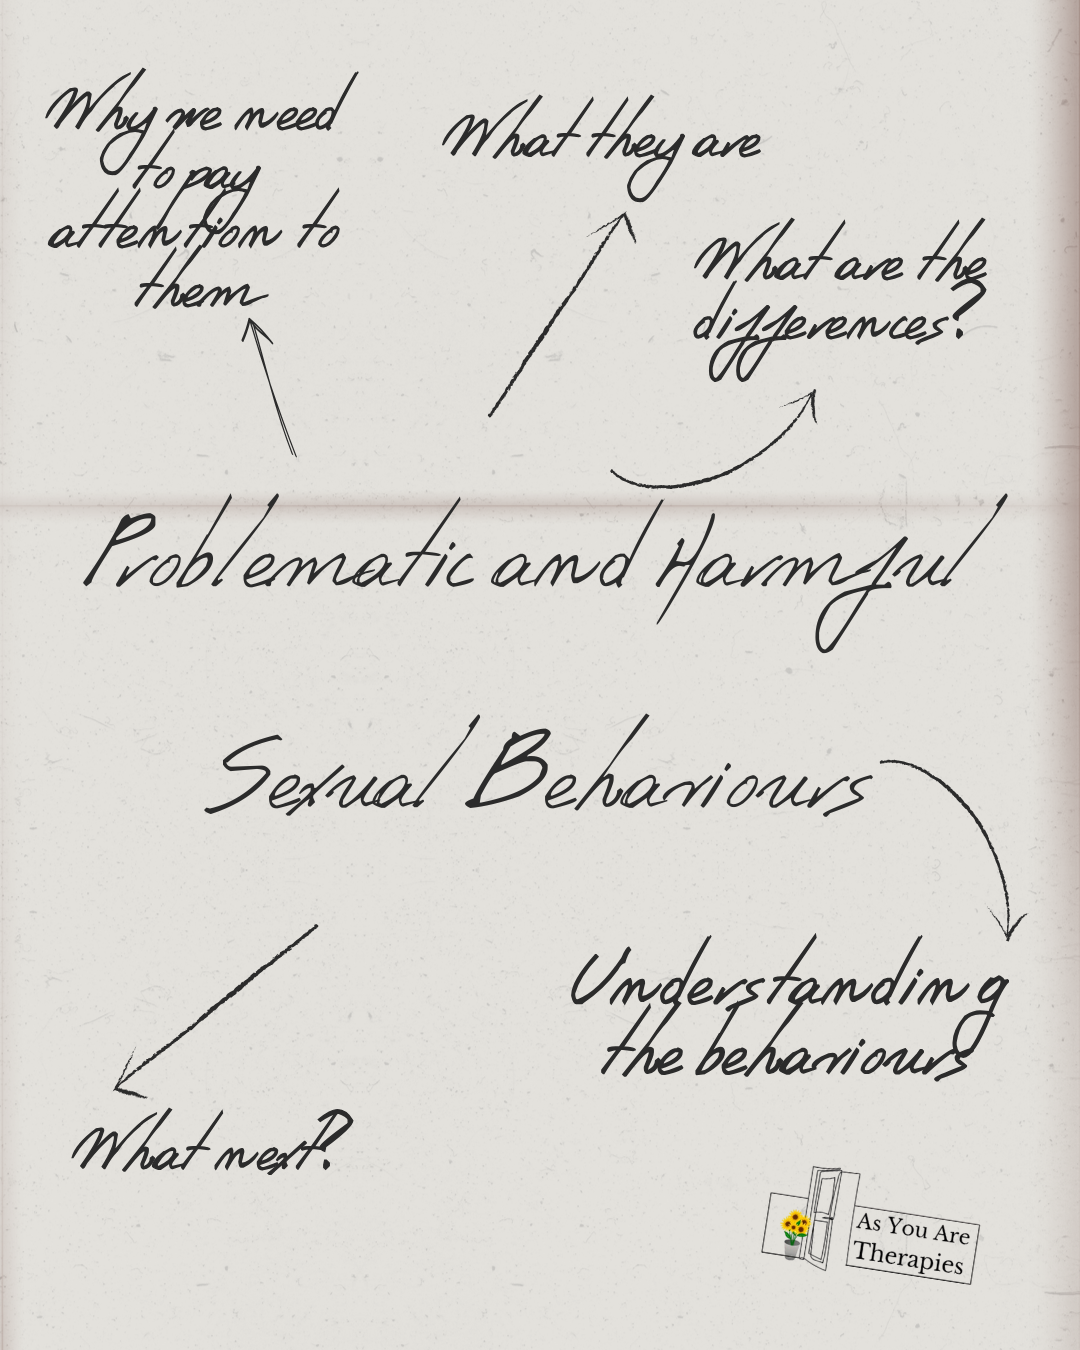 Why we need
to pay
attention to
them
What they are
What are the
differences?
Problematic and Harmful
Sexual Behaviours
Understanding
the behaviours
What next?
As You Are
Therapies